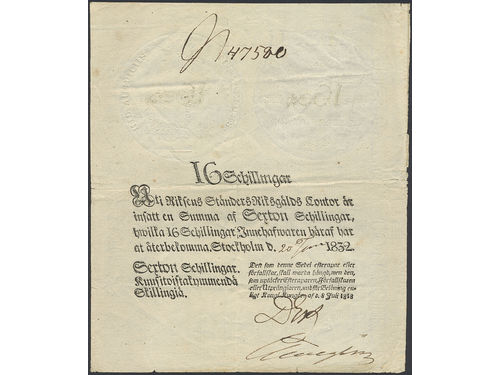 N 47500
16 Schillingar
Uti Riksens Ständers Riksgälds Contor är
insatt en Summa af Sexton Schillingar,
hwilka 16 Schillingar Innehafwaren häraf har
at återbekomma, Stockholm d. 20 1832.
Sexton Schillingar.
Kuusitoistakymmendä
Skillingiä.
Den som denne Sedel efterapar eller
förfalskar, skall warda hängd, men den,
som uptäcker Efteraparen, Förfalskaren
eller Utprånglaren, undfår Belöning en-
ligt Kongl. Kungör. af d. 8 Juli 1818